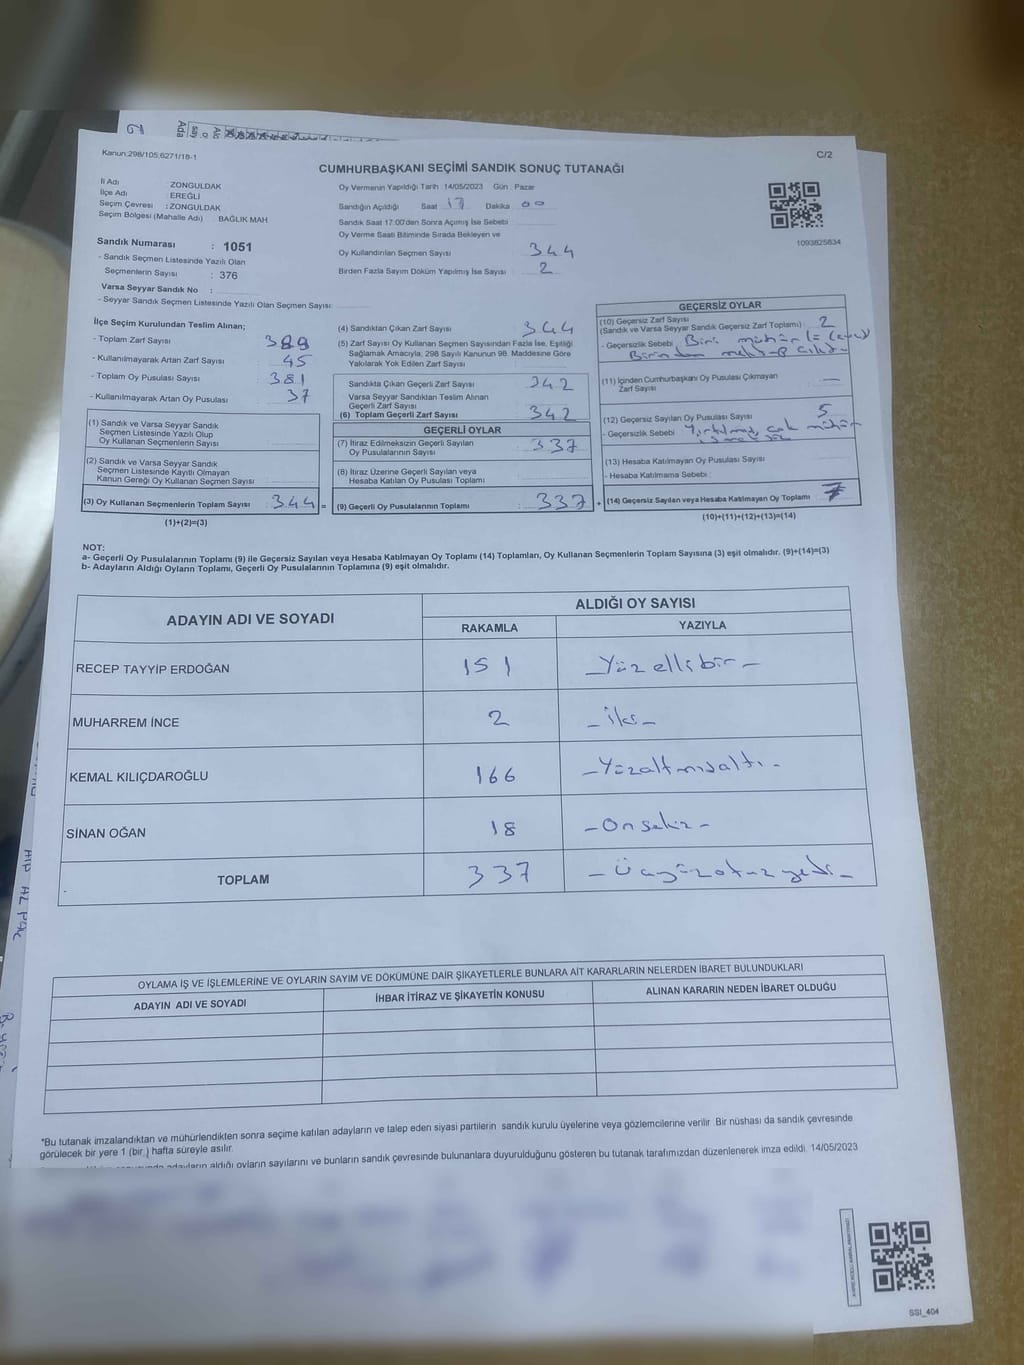 Kanun:298/105;6271/18-1
C/2
CUMHURBAŞKANI SEÇİMİ SANDIK SONUÇ TUTANAĞI
İli Adı : ZONGULDAK
İlçe Adı : EREĞLİ
Seçim Çevresi : ZONGULDAK
Seçim Bölgesi (Mahalle Adı) BAĞLIK MAH
Sandık Numarası : 1051
- Sandık Seçmen Listesinde Yazılı Olan
Seçmenlerin Sayısı : 376
Varsa Seyyar Sandık No :
- Seyyar Sandık Seçmen Listesinde Yazılı Olan Seçmen Sayısı:
Oy Vermenin Yapıldığı Tarih :14/05/2023 Gün : Pazar
Sandığın Açıldığı Saat 17 Dakika 00
Sandık Saat 17:00'den Sonra Açımış İse Sebebi
Oy Verme Saati Bitiminde Sırada Bekleyen ve
Oy Kullandırılan Seçmen Sayısı 344
Birden Fazla Sayım Döküm Yapılmış İse Sayısı : 2
1093825834
İlçe Seçim Kurulundan Teslim Alınan;
- Toplam Zarf Sayısı
- Kullanılmayarak Artan Zarf Sayısı 45
- Toplam Oy Pusulası Sayısı : 381
- Kullanılmayarak Artan Oy Pusulası : 37
(1) Sandık ve Varsa Seyyar Sandık
Seçmen Listesinde Yazılı Olup
Oy Kullanan Seçmenlerin Sayısı
(2) Sandık ve Varsa Seyyar Sandık
Seçmen Listesinde Kayıtlı Olmayan
Kanun Gereği Oy Kullanan Seçmen Sayısı
(3) Oy Kullanan Seçmenlerin Toplam Sayısı : 344 =
(1)+(2)=(3)
(4) Sandıktan Çıkan Zarf Sayısı 344
(5) Zarf Sayısı Oy Kullanan Seçmen Sayısından Fazla İse, Eşitliği
Sağlamak Amacıyla, 298 Sayılı Kanunun 98. Maddesine Göre
Yakılarak Yok Edilen Zarf Sayısı
Sandıkta Çıkan Geçerli Zarf Sayısı 342
Varsa Seyyar Sandıktan Teslim Alınan
Geçerli Zarf Sayısı
(6) Toplam Geçerli Zarf Sayısı 342
GEÇERLİ OYLAR
(7) İtiraz Edilmeksizin Geçerli Sayılan
Oy Pusulalarının Sayısı : 337
(8) İtiraz Üzerine Geçerli Sayılan veya
Hesaba Katılan Oy Pusulası Toplamı
(9) Geçerli Oy Pusulalarının Toplamı : 337 +
GEÇERSİZ OYLAR
(10) Geçersiz Zarf Sayısı 2
(Sandık ve Varsa Seyyar Sandık Geçersiz Zarf Toplamı)
- Geçersizlik Sebebi : Biri
Birinden
(11) İçinden Cumhurbaşkanı Oy Pusulası Çıkmayan
Zarf Sayısı —
(12) Geçersiz Sayılan Oy Pusulası Sayısı 5
- Geçersizlik Sebebi çok mühür
(13) Hesaba Katılmayan Oy Pusulası Sayısı
- Hesaba Katılmama Sebebi
(14) Geçersiz Sayılan veya Hesaba Katılmayan Oy Toplamı 7
(10)+(11)+(12)+(13)=(14)
NOT:
a- Geçerli Oy Pusulalarının Toplamı (9) ile Geçersiz Sayılan veya Hesaba Katılmayan Oy Toplamı (14) Toplamları, Oy Kullanan Seçmenlerin Toplam Sayısına (3) eşit olmalıdır. (9)+(14)=(3)
b- Adayların Aldığı Oyların Toplamı, Geçerli Oy Pusulalarının Toplamına (9) eşit olmalıdır.
ADAYIN ADI VE SOYADI ALDIĞI OY SAYISI
RAKAMLA YAZIYLA
RECEP TAYYİP ERDOĞAN 151 -Yüzellibir-
MUHARREM İNCE 2 -İki-
KEMAL KILIÇDAROĞLU 166 -Yüzaltmışaltı-
SİNAN OĞAN 18 -Onsekiz-
TOPLAM 337 -Üçyüzotuzyedi-
OYLAMA İŞ VE İŞLEMLERİNE VE OYLARIN SAYIM VE DÖKÜMÜNE DAİR ŞİKAYETLERLE BUNLARA AİT KARARLARIN NELERDEN İBARET BULUNDUKLARI
ADAYIN ADI VE SOYADI İHBAR İTİRAZ VE ŞİKAYETİN KONUSU ALINAN KARARIN NEDEN İBARET OLDUĞU
*Bu tutanak imzalandıktan ve mühürlendikten sonra seçime katılan adayların ve talep eden siyasi partilerin sandık kurulu üyelerine veya gözlemcilerine verilir. Bir nüshası da sandık çevresinde
görülecek bir yere 1 (bir ) hafta süreyle asılır.
adayların aldığı oyların sayılarını ve bunların sandık çevresinde bulunanlara duyurulduğunu gösteren bu tutanak tarafımızdan düzenlenerek imza edildi. 14/05/2023
SSI_404